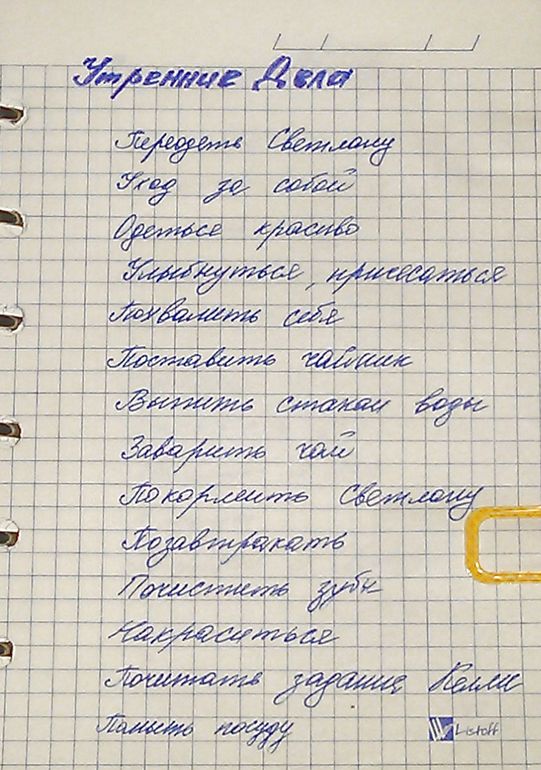 Утренние Дела
Переодеть Светлану
Уход за собой
Одеться красиво
Улыбнуться, причесаться
Похвалить себя
Поставить чайник
Выпить стакан воды
Заварить чай
Покормить Светлану
Позавтракать
Почистить зубы
Накраситься
Почитать задания Келли
Помыть посуду
Listoff